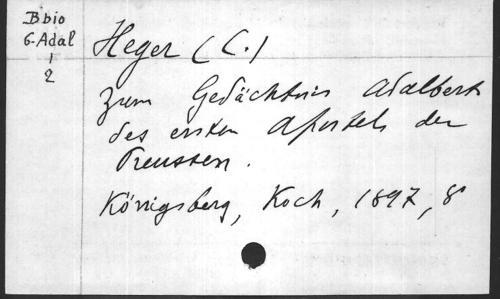 B bio
G-Adal
1
2
Heger (C.)
Zum Gedächtnis Adalberts
des ersten Apostels der
Preussen.
Königsberg, Koch, 1897, 8